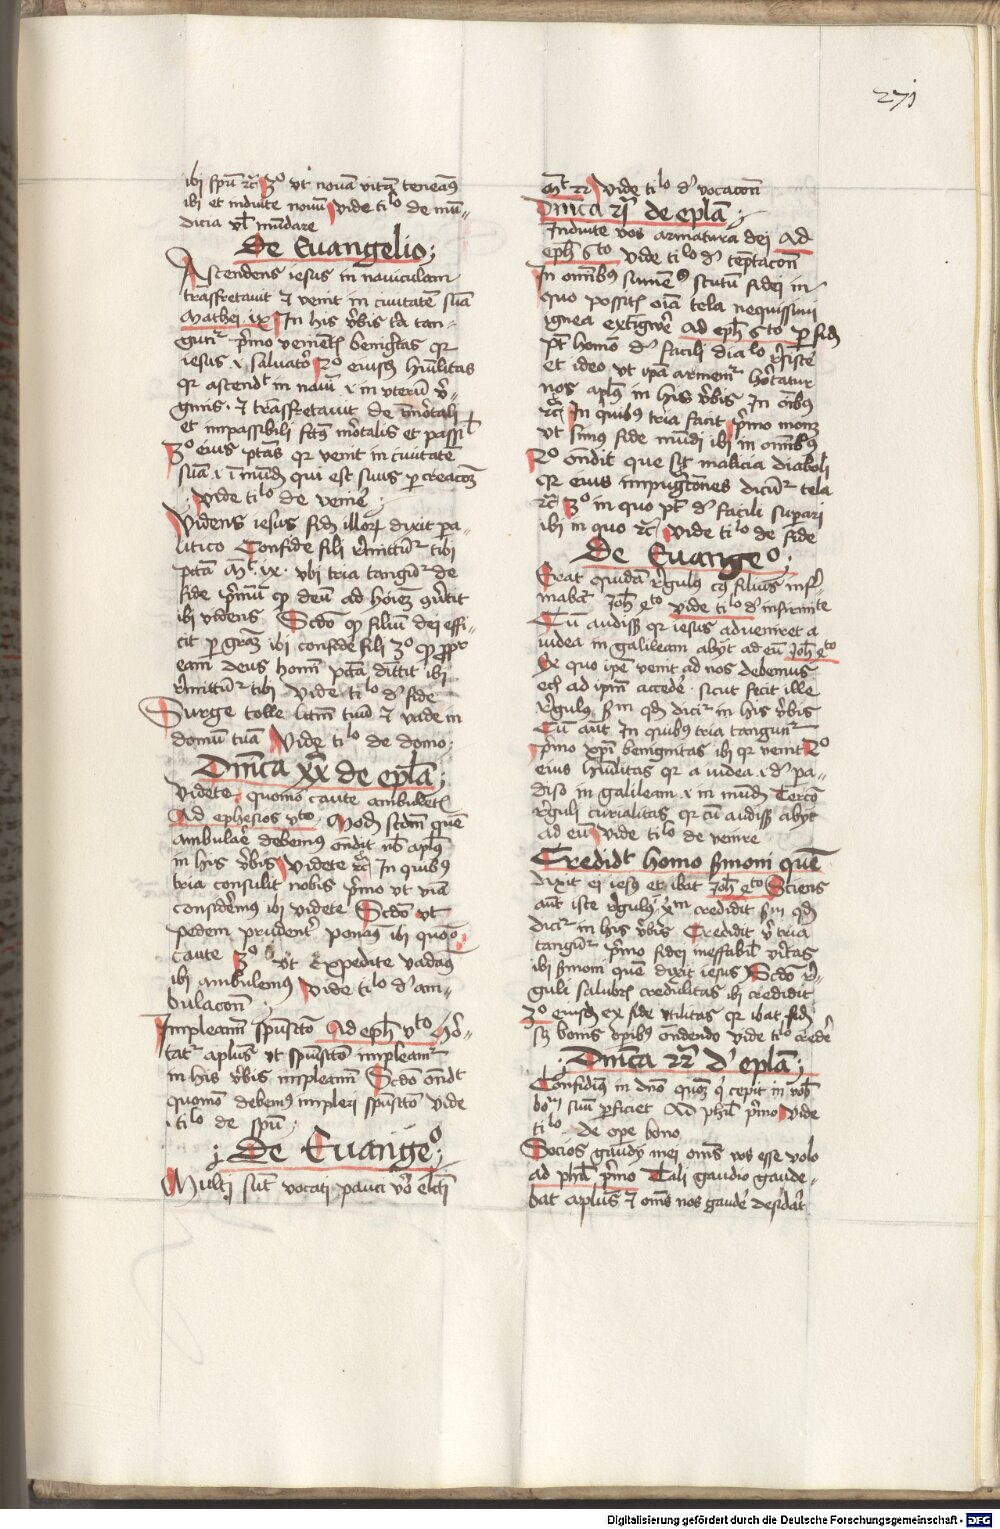 271
ibi spūm rc̄ 3º vt nouā vitā teneam9
ibi et induite nouū vide tilo de mū-
dicia vl mūdare
De Euangelio;
Ascendens iesus in nauiculam
trasfretauit & venit in ciuitatē suā
Mathei ix In his vb̄is tā tan-
gūr p̄mo
iesus saluator 2º eius humilitas
qr ascendt in nauī
ginis & trasfretauit de
et impassibili mortalis et passi
3º eius ptās qr venit in ciuitatē
suā mūdū qui est suus p creacoz
vide tilo de venīe
Videns iesus fidē illorū dixit pa-
litico Confide fili remittūr tibi
pctā Mt ix vbi tria tangūr de
fide p̄mū qp deū ad
ibi videns Scd̄o qp filiū dei effi-
cit p graz ibi confide fili 3º qp
eam deus pctā ibi
remittūr tibi vide tilo d' fide
Surge tolle lectū tuū & vade in
domū tuā Vide tilo de domo
Dn̄ica xx de epl̄a;
Videte quomo caute ambuletis
Ad ephesios vto Modū scd̄m quē
ambulare debem9 ondit nb̄ apl9
in his vb̄is Videte rc̄ In quib9
tria consulit nobis p̄mo vt viā
consideem9 ibi videte Scd̄o vt
pedem prudent' ponam9 ibi quoo
caute 3º vt Expedite vadam9
ibi ambulemus vide tilo d' am-
bulacon̄
Impleamī spūsctō Ad eph vto Hor-
tatr aplus vt spūsctō impleamr
in his vb̄is impleamī Scd̄o ondt
quomō debem9 impleri spūsctō vide
tilo de spū;
; De Euangeo;
Multi sūt vocati pauci v̄o elcti
Mt 22 Vide tilo d' vocacon̄
Dn̄ica 21 de epl̄a;
Induite vos armatura dei Ad
eph 6to vide tilo d' tēptacon̄
In omnib9 sumētes scutū fidei in
quo possitis oīa tela nequissimi
ignea extīguere Ad eph 6to p fidē
pt homō d' facili diabolo resistē
et ideo vt ipā armemr hortatur
nos apl9 in his vb̄is In oīb9
rc̄ In quib9 tria facit p̄mo monz
vt sim9 fide mūdi ibi in omib9
2º ondit que sit malicia diaboli
qr eius impugtōnes dicūr tela
rc̄ 3º in quo pt d' facili supari
ibi in quo rc̄ vide tilo de fide
De Euangeo;
Erat quidā regulus cuius filius infir-
mabatr Joh 4to vide tilo d' infirmite
Cū audisset qr iesus adueniret a
iudea in galileam abijt ad eū Joh 4to
Ex quo ipe venit ad nos debemus
eciā ad ipm accede sicut fecit ille
regul9 sm qd dicir in his vb̄is
Cū aut In quib9 tria tangunr
p̄mo xpi benignitas ibi qr venit 2º
eius hūilitas qr a iudea i d' pa-
diso in galileam i in mūdū Tercō
reguli curialitas qr cū audisset abijt
ad eū vide tilo de venire
Credidt homo smoni quē
dixit ei iesus et ibat Joh 4to Sciens
aut iste regulus xm credidit sm qd
dicir in his vb̄is Credidit v̄ tria
tangūr p̄mo fidei ineffabilis v̄itas
ibi smoni quē dixit iesus Scd̄o re-
guli salubris credulitas ibi credidit
3º eiusdē ex fide vtilitas qr ibat fidē
sz bonis opibus ondendo vide tilo crede
; Dn̄ica 22 d' epl̄a;
Confidim9 in dn̄o quoz q' cepit in vob
bor suū pficiet Ad phil p̄mo vide
tilo de ope bono
Socios gaudij mei omēs vos esse volo
ad phil p̄mo Tali gaudio gaude-
bat aplus & omēs nos gaude desidāt
Digitalisierung gefördert durch die Deutsche Forschungsgemeinschaft - DFG